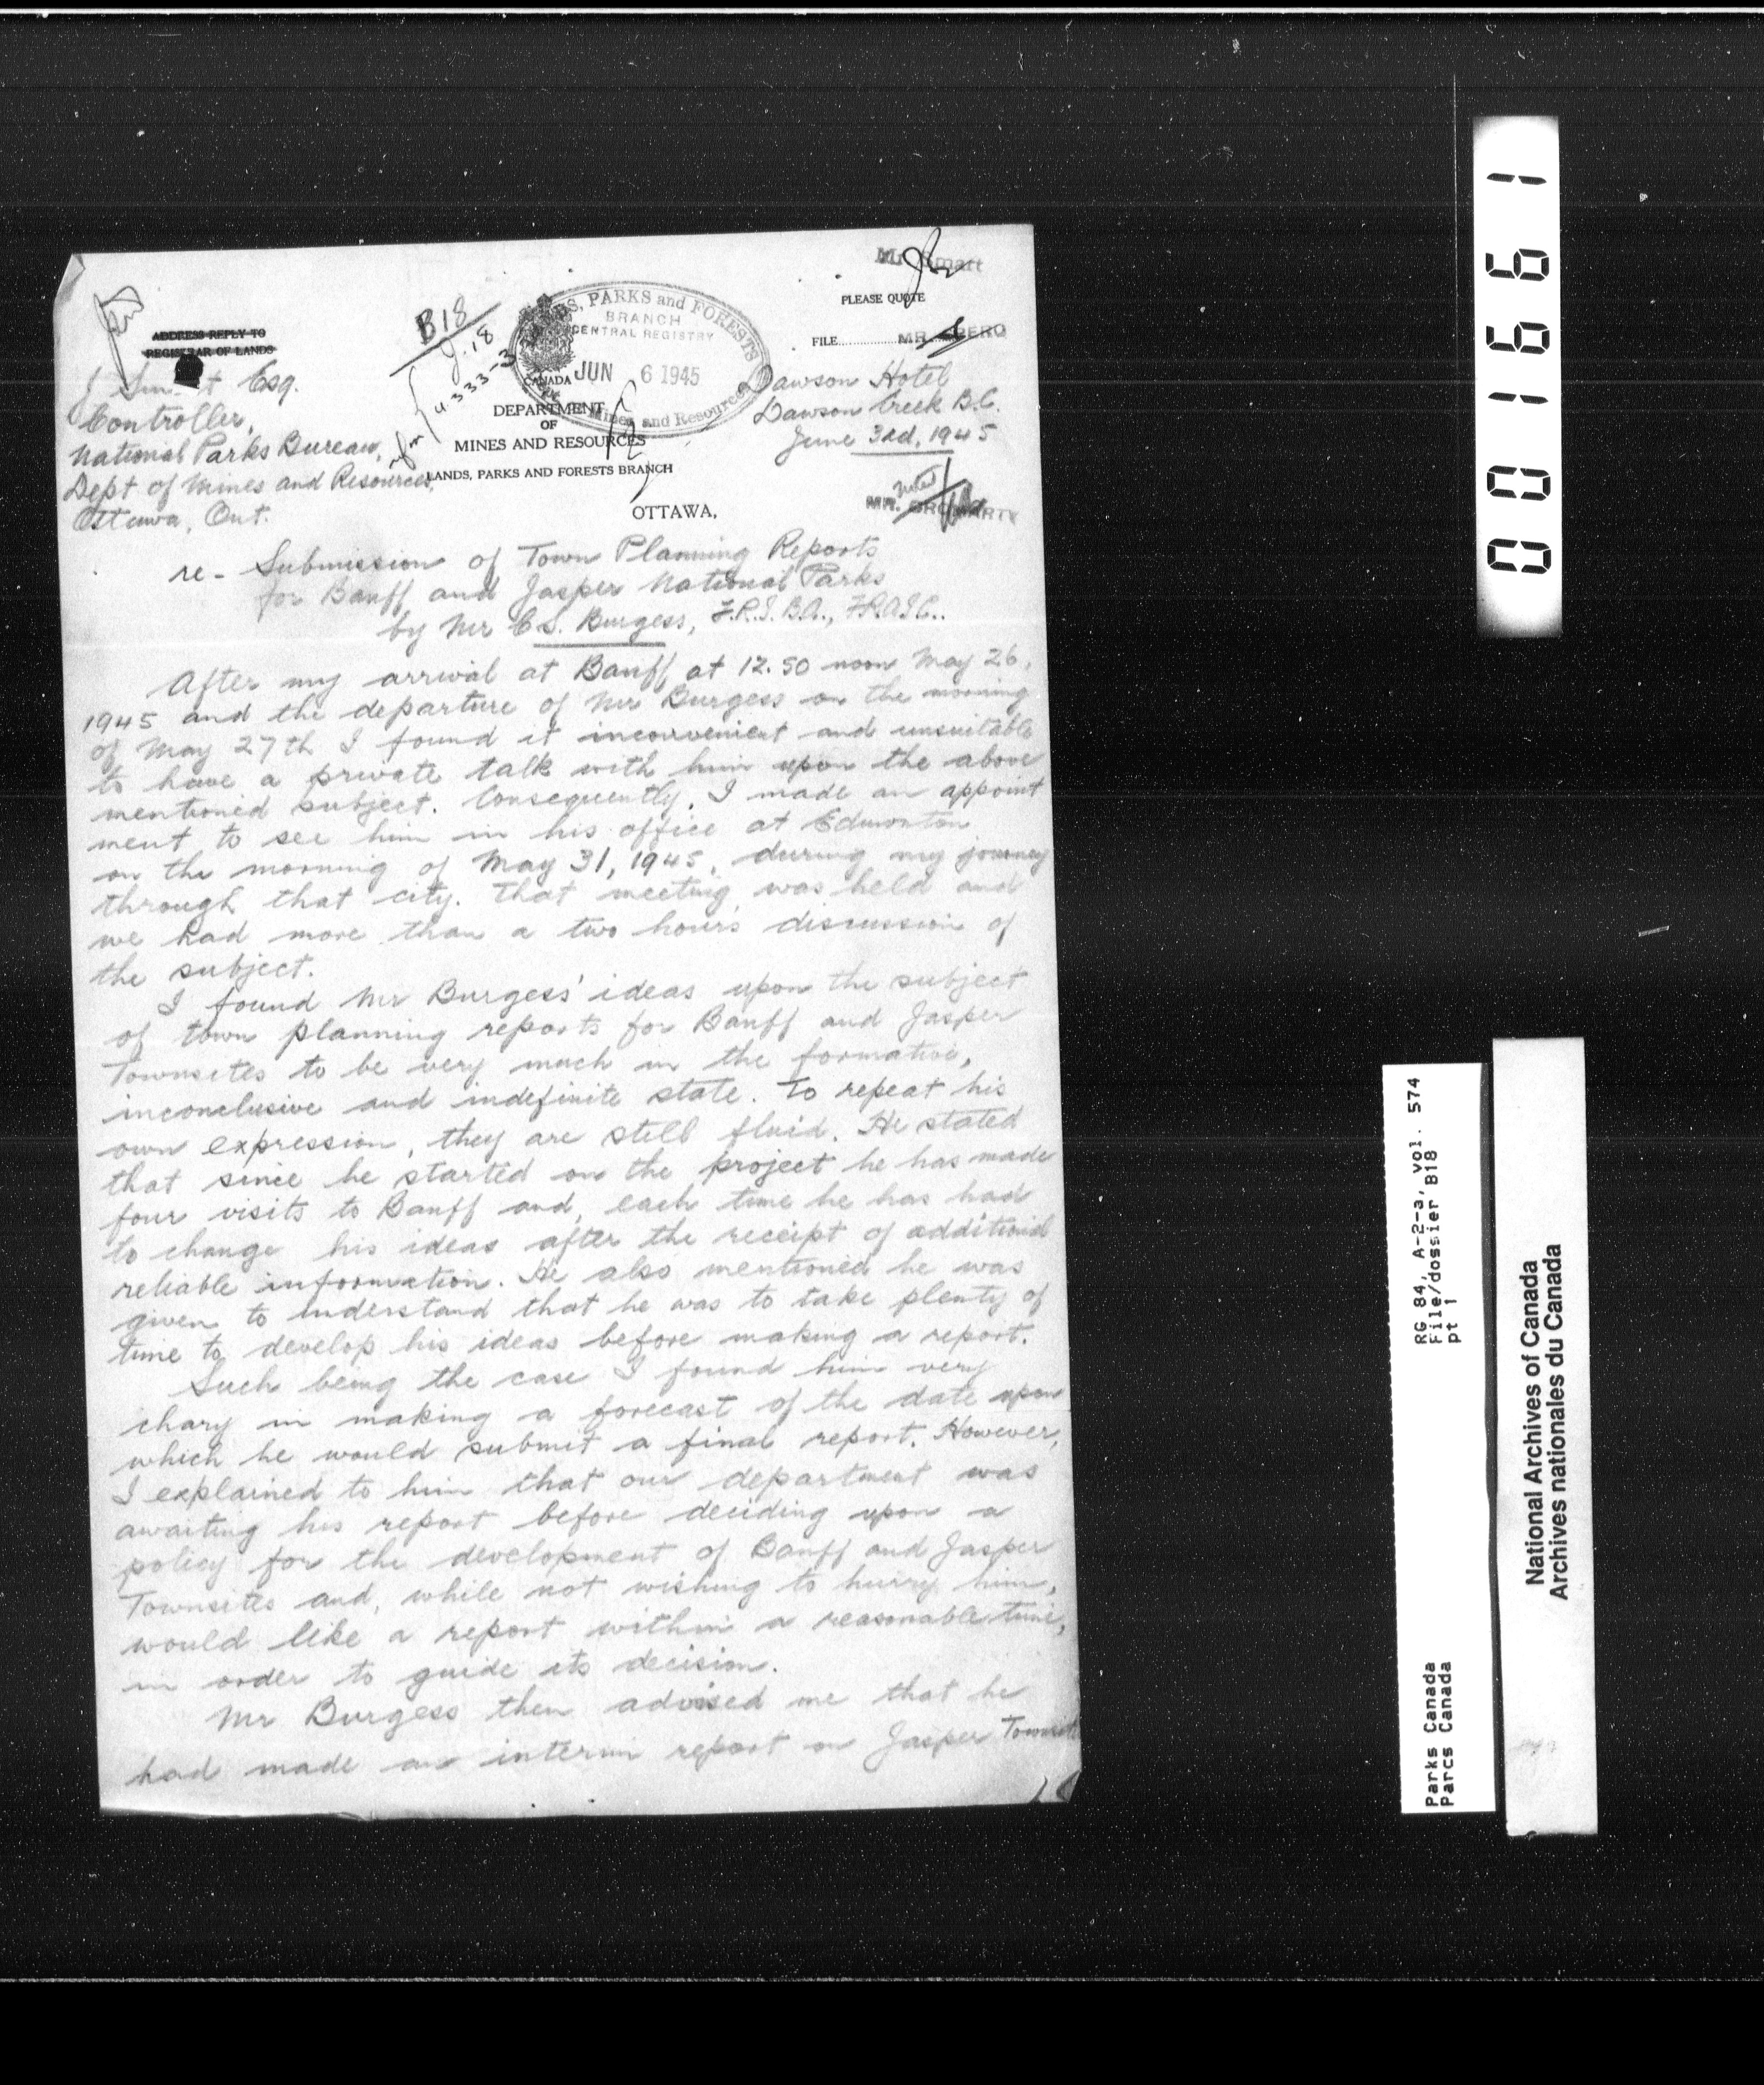 Mr. Smart
PLEASE QUOTE
FILE
MR. SPERO
ADDRESS REPLY TO
REGISTRAR OF LANDS
B18
J.18
U.333-3
LANDS, PARKS and FORESTS
BRANCH
CENTRAL REGISTRY
CANADA
JUN 6 1945
Mines and Resources
DEPARTMENT
OF
MINES AND RESOURCES
LANDS, PARKS AND FORESTS BRANCH
OTTAWA,
Dawson Hotel
Dawson Creek B.C.
June 3rd, 1945
J Smart Esq.
Controller,
National Parks Bureau,
Dept of Mines and Resources,
Ottawa, Ont.
MR.
re - Submission of Town Planning Reports
for Banff and Jasper National Parks
by Mr C.S. Burgess, F.R.I.B.A., F.R.A.I.C..
After my arrival at Banff at 12.50 noon May 26,
1945 and the departure of Mr Burgess on the morning
of May 27th I found it inconvenient and unsuitable
to have a private talk with him upon the above
mentioned subject. Consequently, I made an appoint
ment to see him in his office at Edmonton
on the morning of May 31, 1945, during my journey
through that city. That meeting was held and
we had more than a two hours discussion of
the subject.
I found Mr Burgess' ideas upon the subject
of town planning reports for Banff and Jasper
Townsites to be very much in the formative,
inconclusive and indefinite state. To repeat his
own expression, they are still fluid. He stated
that since he started on the project he has made
four visits to Banff and, each time he has had
to change his ideas after the receipt of additional
reliable information. He also mentioned he was
given to understand that he was to take plenty of
time to develop his ideas before making a report.
Such being the case I found him very
chary in making a forecast of the date upon
which he would submit a final report. However,
I explained to him that our department was
awaiting his report before deciding upon a
policy for the development of Banff and Jasper
Townsites and, while not wishing to hurry him,
would like a report within a reasonable time,
in order to guide its decision.
Mr Burgess then advised me that he
had made an interim report on Jasper Townsite
001661
RG 84, A-2-a, vol. 574
File/dossier B18
pt 1
Parks Canada
Parcs Canada
National Archives of Canada
Archives nationales du Canada